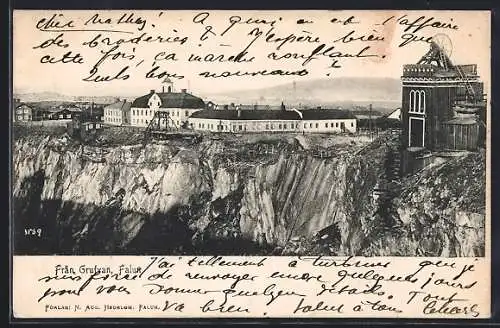 cher Mathey! A quoi en est l'affaire
des broderies? J'espère bien que
cette fois, ça marche ronflant.
Quels bien nouveaux?
No 9
Från Grufvan, Falun
J'ai tellement à turbiner que je
suis forcé de renvoyer encore quelques jours
pour vous donner quelques détails. Tout
va bien. Salut à tous
FÖRLAG: N. AUG. HEDBLOM. FALUN.